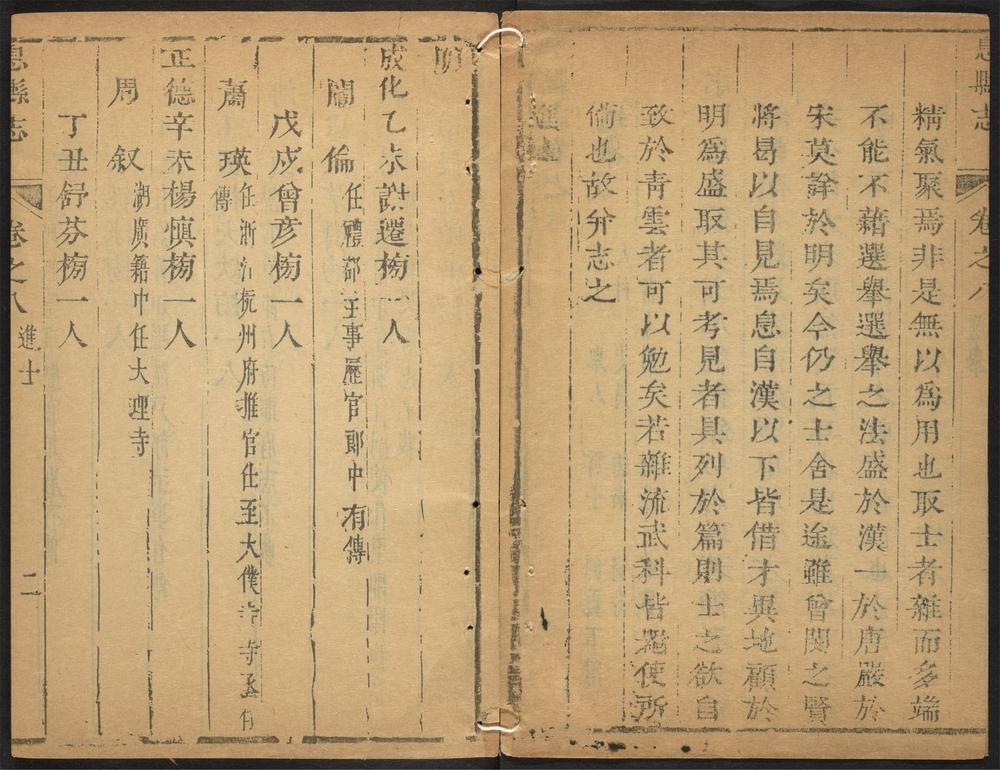 息縣志
卷之八
精氣聚焉非是無以爲用也取士者雜而多端
不能不藉選舉選舉之法盛於漢一於唐嚴於
宋莫詳於明矣今仍之士舍是途雖曾閔之賢
將曷以自見焉息自漢以下皆借才異地顧於
明爲盛取其可考見者具列於篇則士之欲自
致於青雲者可以勉矣若雜流武科皆器使所
尚也故弁志之
明
成化乙未謝遷榜一人
閻倫 任禮部主事歷官郎中有傳
戊戌曾彥榜一人
蕭瑛 任浙江杭州府推官仕至大僕寺寺丞有
傳
正德辛未楊慎榜一人
周敘 湖廣籍中任大理寺
丁丑舒芬榜一人
息縣志
卷之八 進士
二